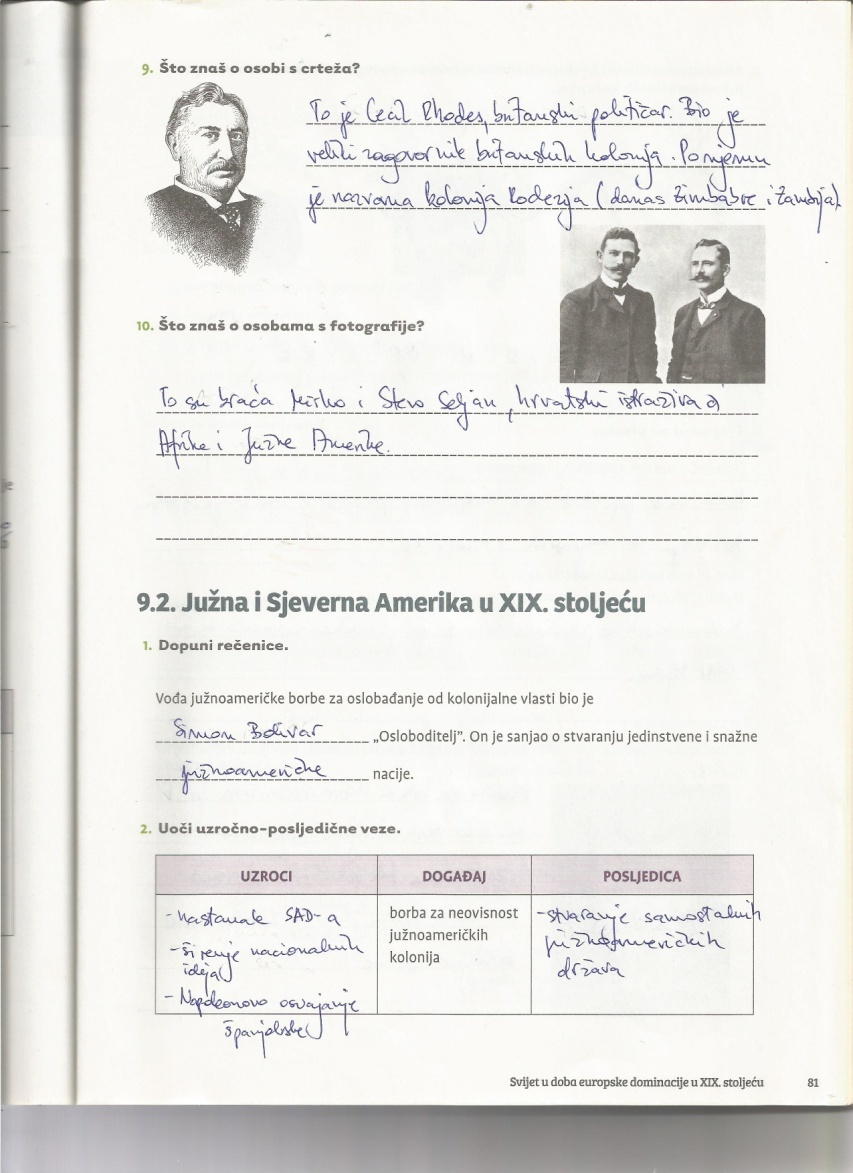 9. Što znaš o osobi s crteža?
To je Cecil Rhodes, britanski političar. Bio je
veliki zagovornik britanskih kolonija. Po njemu
je nazvana kolonija Rodezija (danas Zimbabve i Zambija).
10. Što znaš o osobama s fotografije?
To su braća Mirko i Stevo Seljan, hrvatski istraživači
Afrike i Južne Amerike.
9.2. Južna i Sjeverna Amerika u XIX. stoljeću
1. Dopuni rečenice.
Vođa južnoameričke borbe za oslobađanje od kolonijalne vlasti bio je
Simon Bolivar „Osloboditelj”. On je sanjao o stvaranju jedinstvene i snažne
južnoameričke nacije.
2. Uoči uzročno-posljedične veze.
UZROCI DOGAĐAJ POSLJEDICA
- nastanak SAD-a
- širenje nacionalnih
ideja
- Napoleonovo osvajanje
Španjolske
borba za neovisnost
južnoameričkih
kolonija
- stvaranje samostalnih
južnoameričkih
država
Svijet u doba europske dominacije u XIX. stoljeću 81